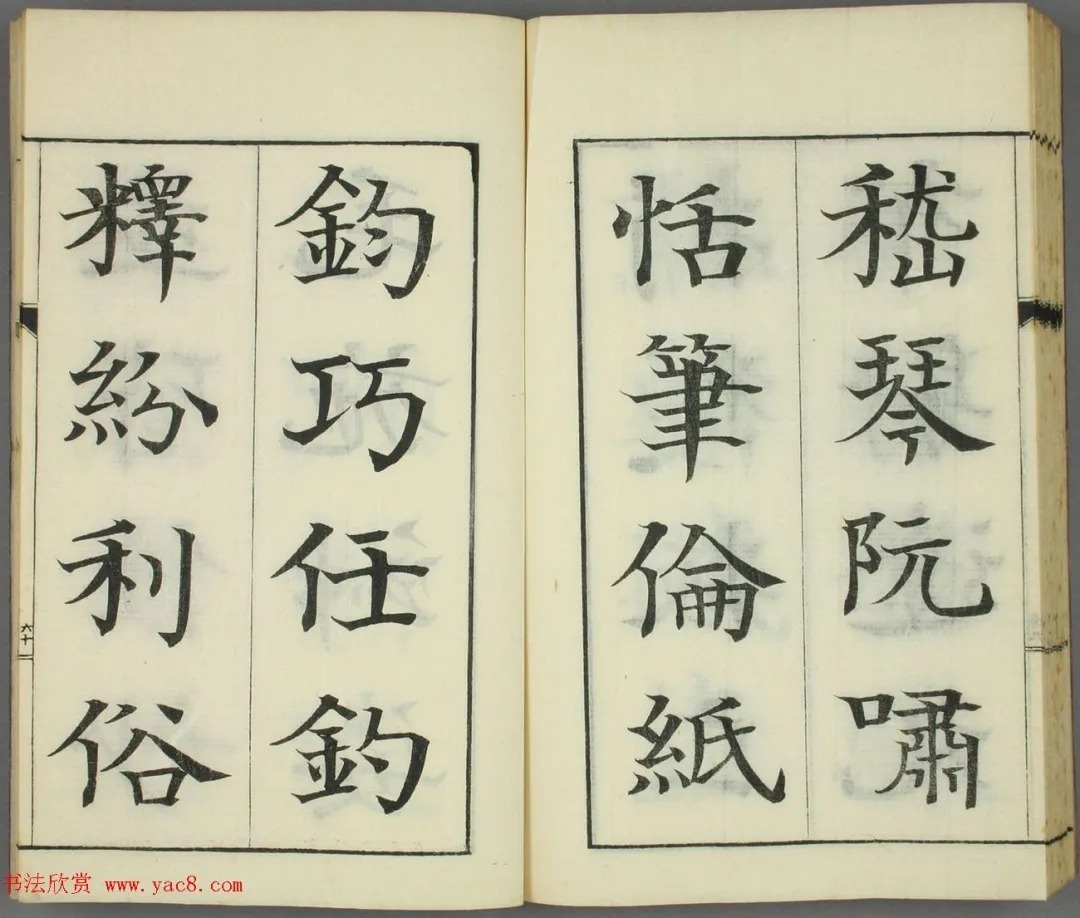 嵇琴阮嘯
恬筆倫紙
鈞巧任釣
釋紛利俗
六十
书法欣赏 www.yac8.com